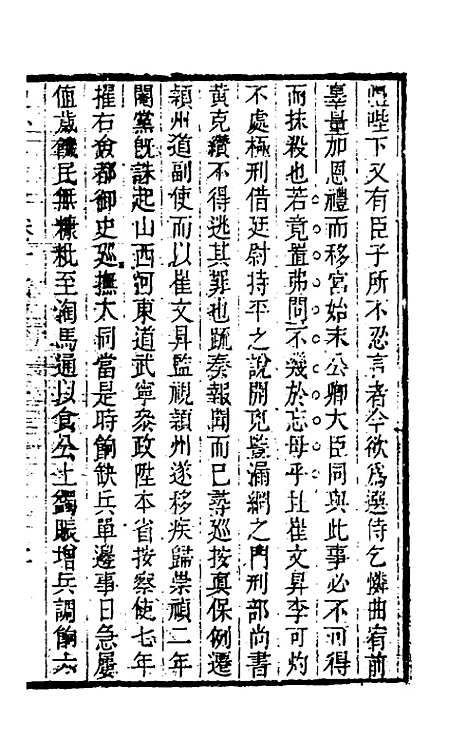 陛下又有臣子所不忍言者今欲爲選侍乞憐曲宥前
辜量加恩禮而移宮始末公卿大臣同與此事必不可得
而抹殺也若竟置弗問不幾於忘母乎且崔文昇李可灼
不處極刑借廷尉持平之說開兇豎漏網之門刑部尚書
黃克纘不得逃其罪也疏奏報聞而已薄巡按眞保例遷
潁州道副使而以崔文昇監視潁州遂移疾歸崇禎二年
閹黨旣誅起山西河東道武寧叅政陞本省按察使七年
擢右僉都御史巡撫大同當是時餉缺兵單邊事日急屢
值歲饑民無糠粃至淘馬通以食公上蠲賑增兵調餉六